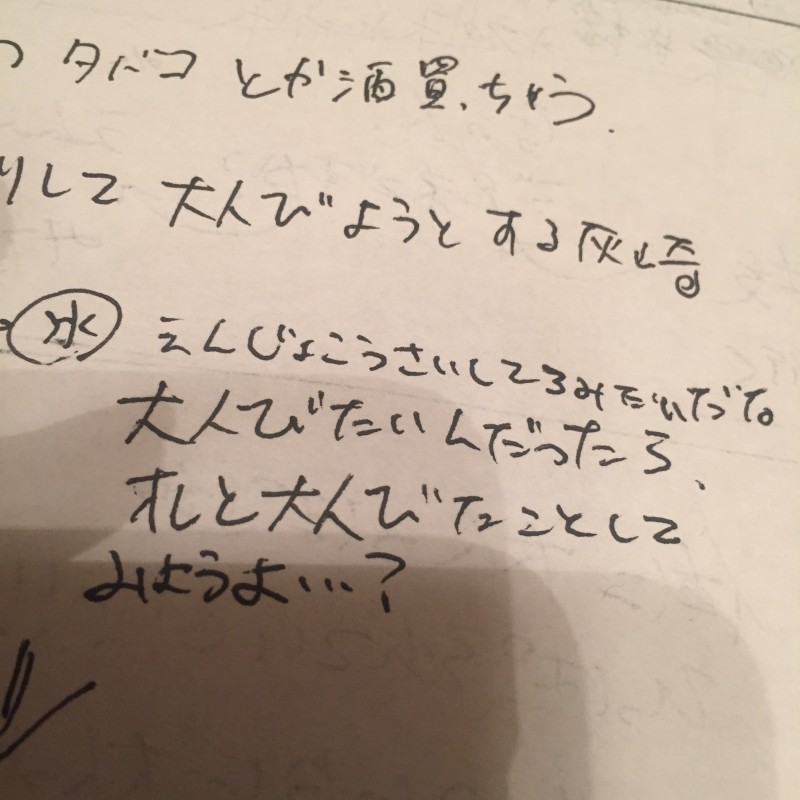 タバコとか酒買っちゃう。
りして 大人びようとする灰音
水 えんじょこうさいしてるみたいだな
大人びたいんだったら、
オレと大人びたことして
みようよ…?